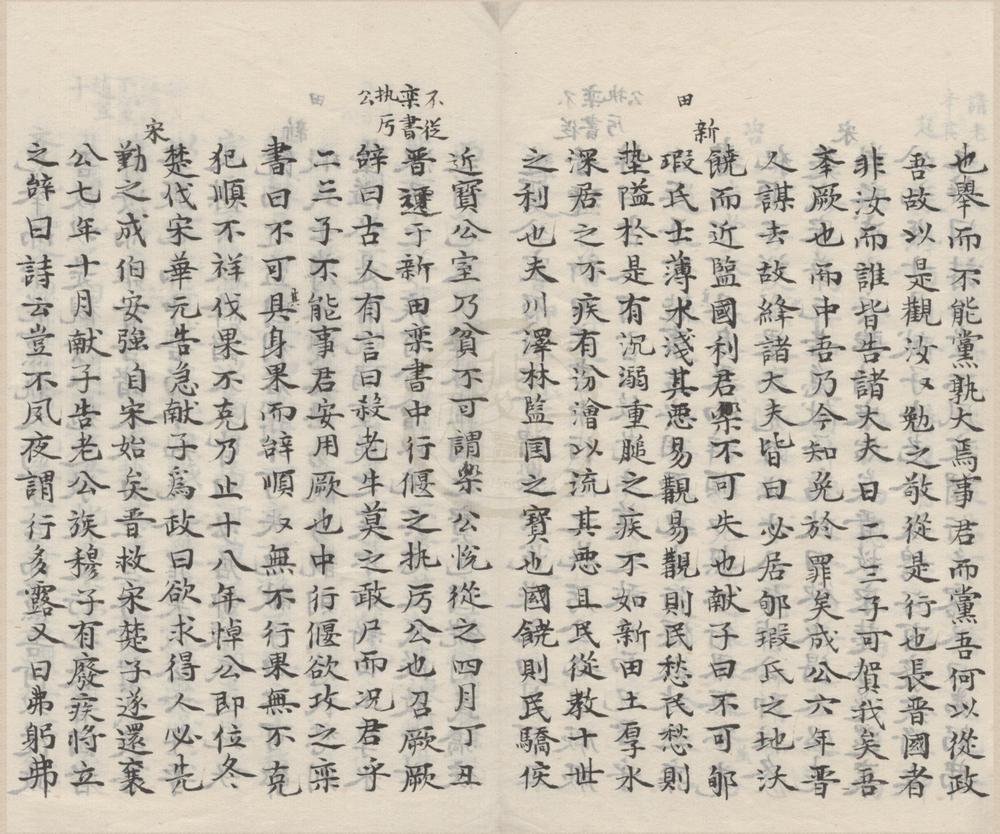 也舉而不能黨孰大焉事君而黨吾何以從政
吾故以是觀汝汝勉之敬從是行也長晋國者
非汝而誰皆告諸大夫曰二三子可賀我矣吾
峯厥也而中吾乃今知免於罪矣成公六年晋
人謀去故絳諸大夫皆曰必居郇瑕氏之地沃
饒而近監國利君樂不可失也献子曰不可郇
瑕氏士薄水淺其悪易觀易觀則民愁民愁則
墊隘於是有沉溺重膇之疾不如新田土厚水
深居之不疾有汾澮以流其悪且民從教十世
之利也夫川澤林監国之寶也國饒則民驕佚
近寶公室乃貧不可謂樂公悅從之四月丁丑
晋遷于新田栾書中行偃之执厉公也召厥厥
辭曰古人有言曰殺老牛莫之敢尸而况君乎
二三子不能事君安用厥也中行偃欲攻之栾
書曰不可具身果而辭順順無不行果無不克
犯順不祥伐果不克乃止十八年悼公即位冬
楚伐宋華元告急献子爲政曰欲求得人必先
勤之成伯安強自宋始矣晋救宋楚子遂還襄
公七年十月献子告老公族穆子有廢疾將立
之辭曰詩云豈不夙夜謂行多露又曰弗躬弗
新田
不從栾書执厉公
宋
其